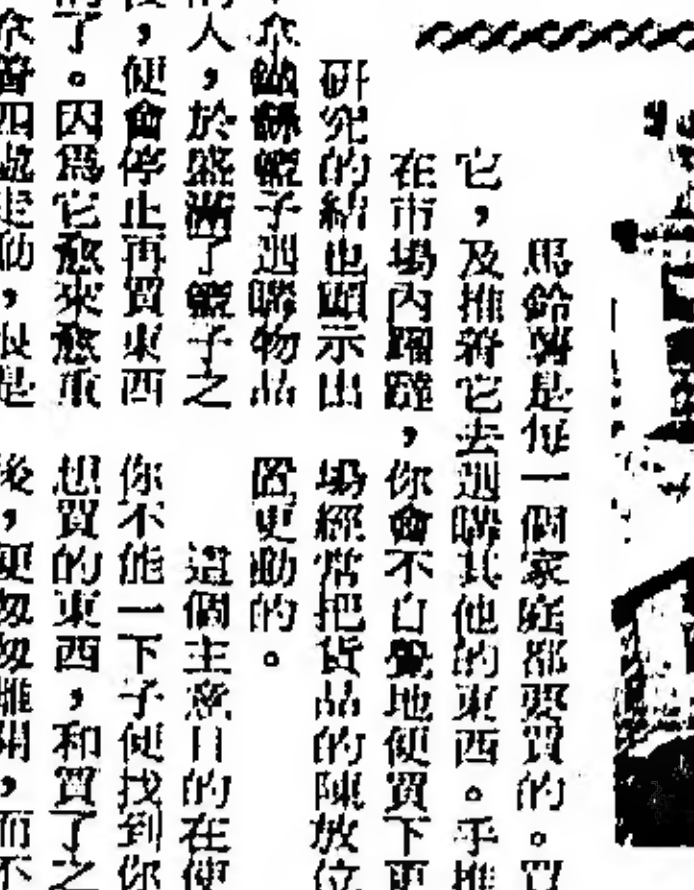 馬鈴薯是每一個家庭都要買的。買
它，及推着它去選購其他的東西。手推
在市場內蹓躂，你會不自覺地便買下更
研究的結也顯示出
籃子選購物品
的人，於盛滿了籃子之
後，便會停止再買東西
的了。因爲它愈來愈重
四處走動，
場經常把貨品的陳放位
置更動的。
這個主意目的在使
你不能一下子便找到你
想買的東西，和買了之
後，便匆匆離開，而不